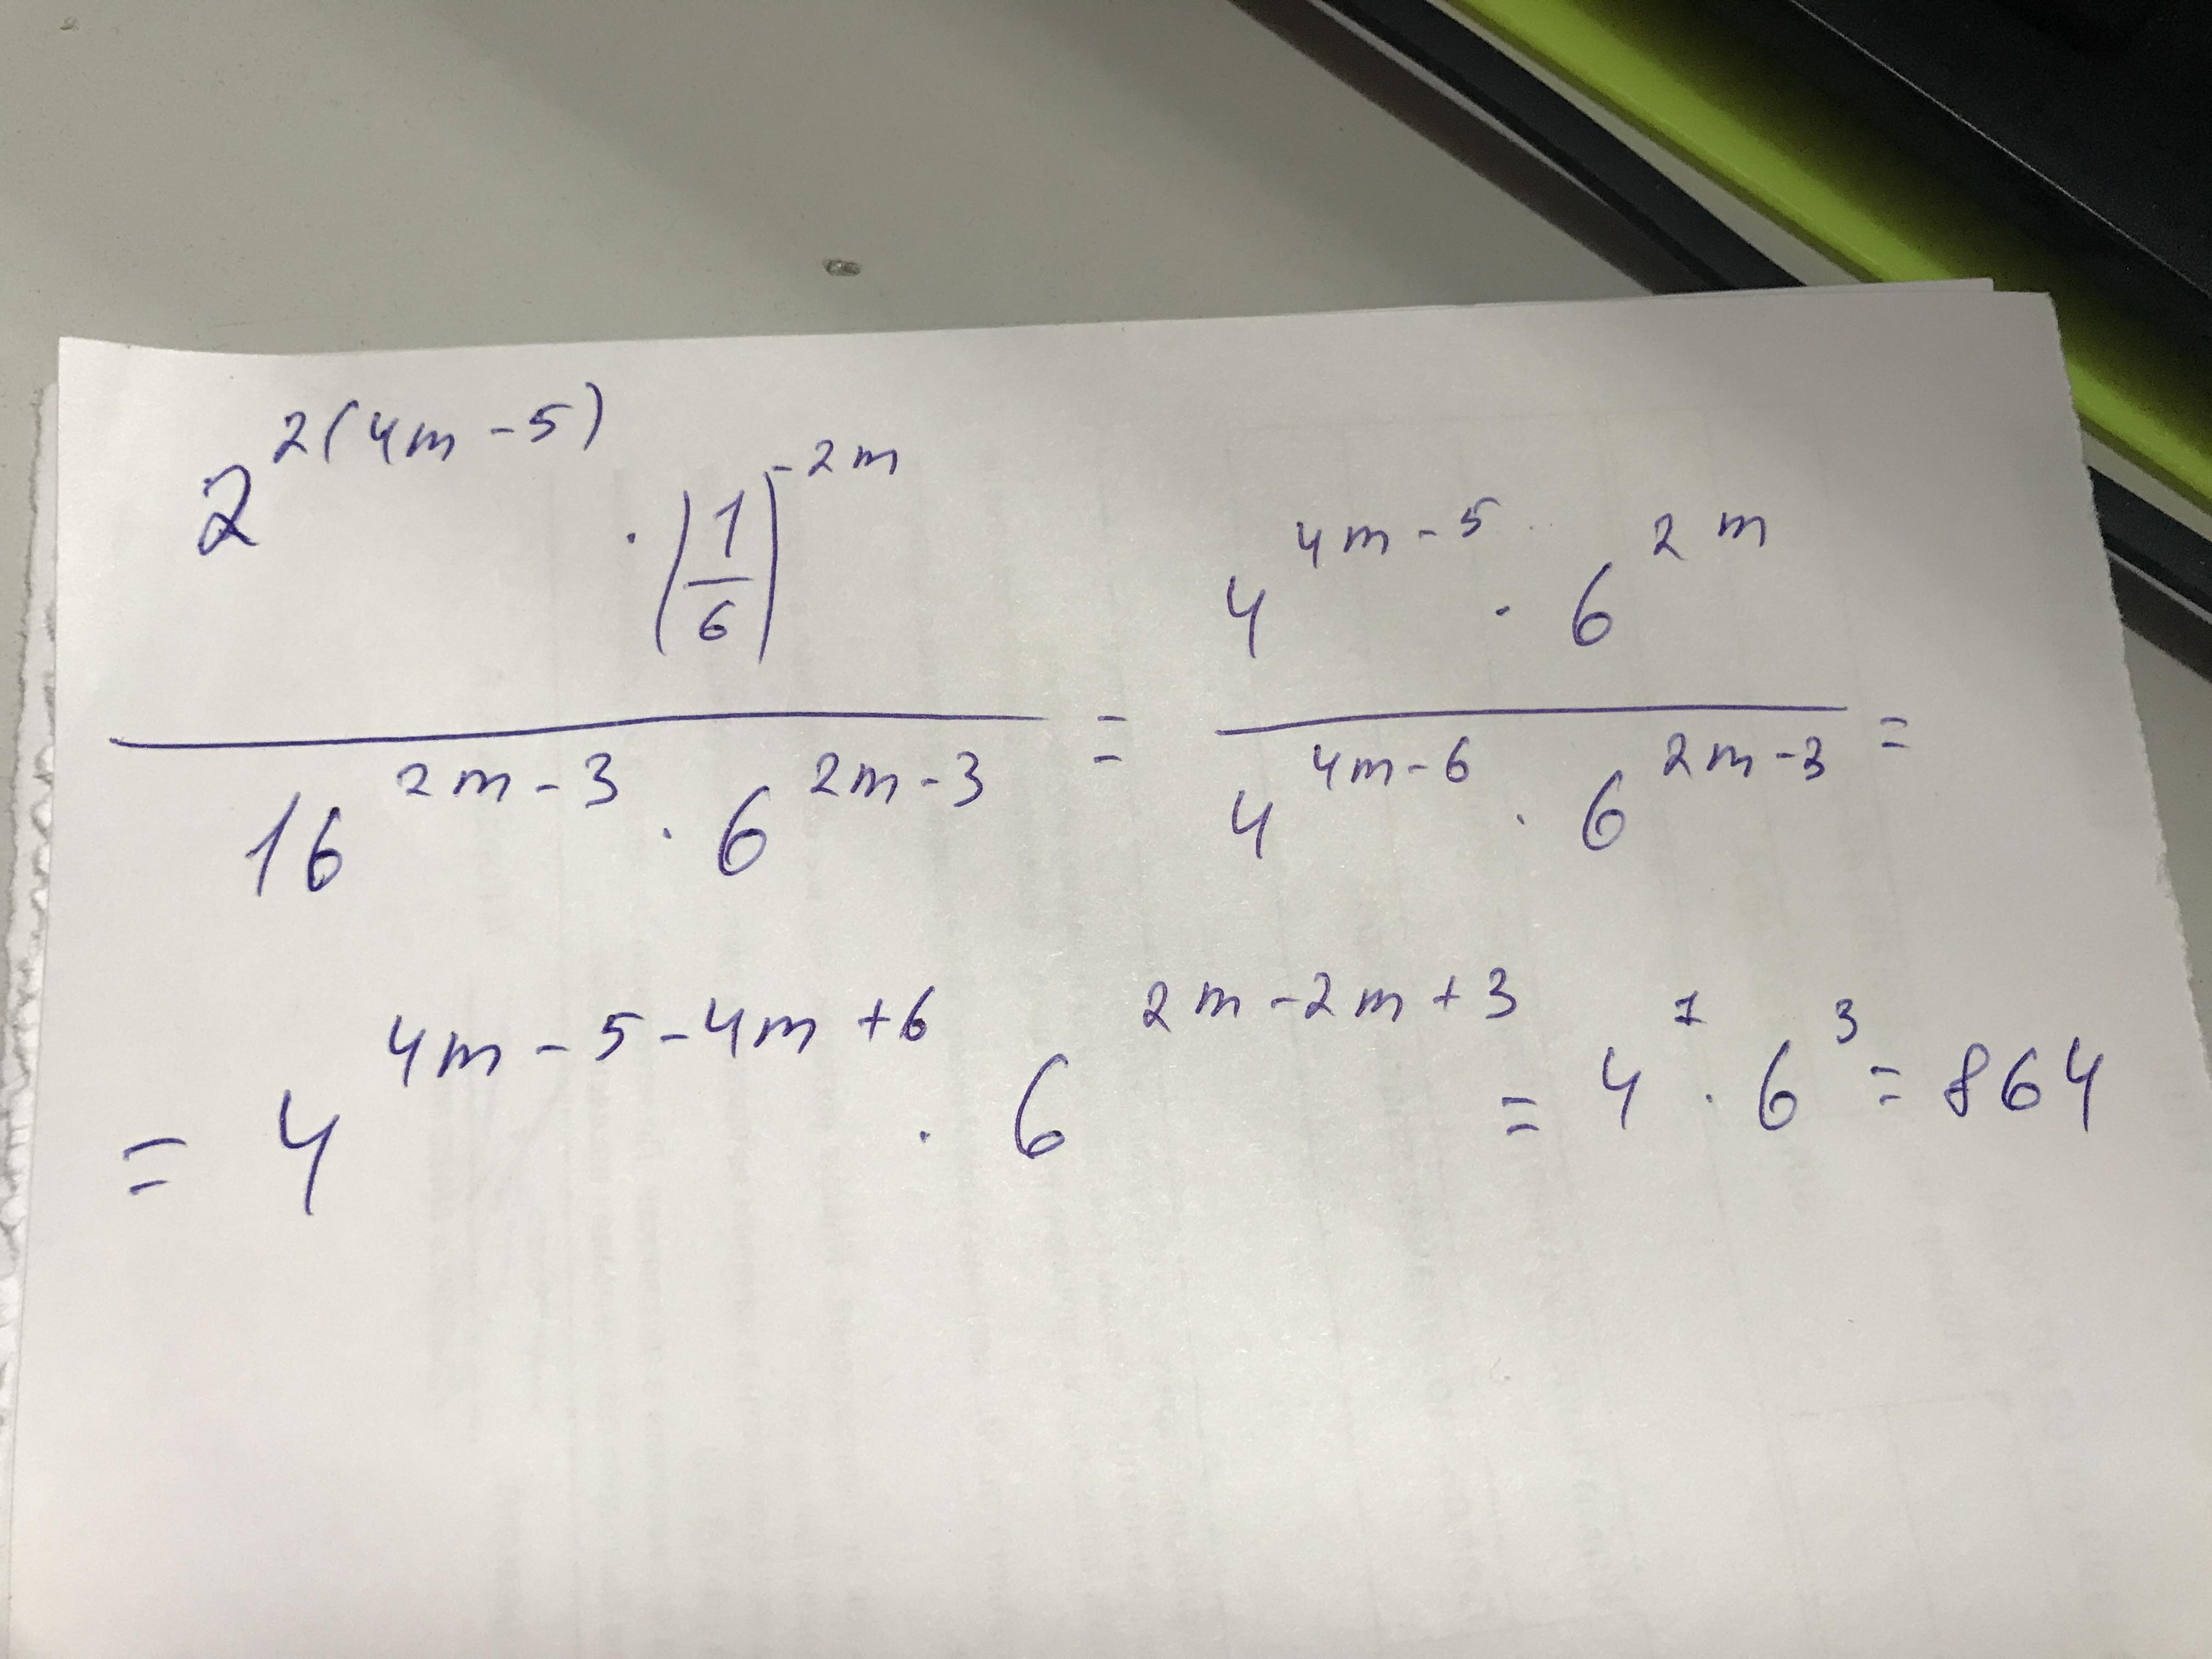 2^{2(4m-5)} · (1/6)^{-2m} / 16^{2m-3} · 6^{2m-3} = 4^{4m-5} · 6^{2m} / 4^{4m-6} · 6^{2m-3} =
= 4^{4m-5-4m+6} · 6^{2m-2m+3} = 4^1 · 6^3 = 864